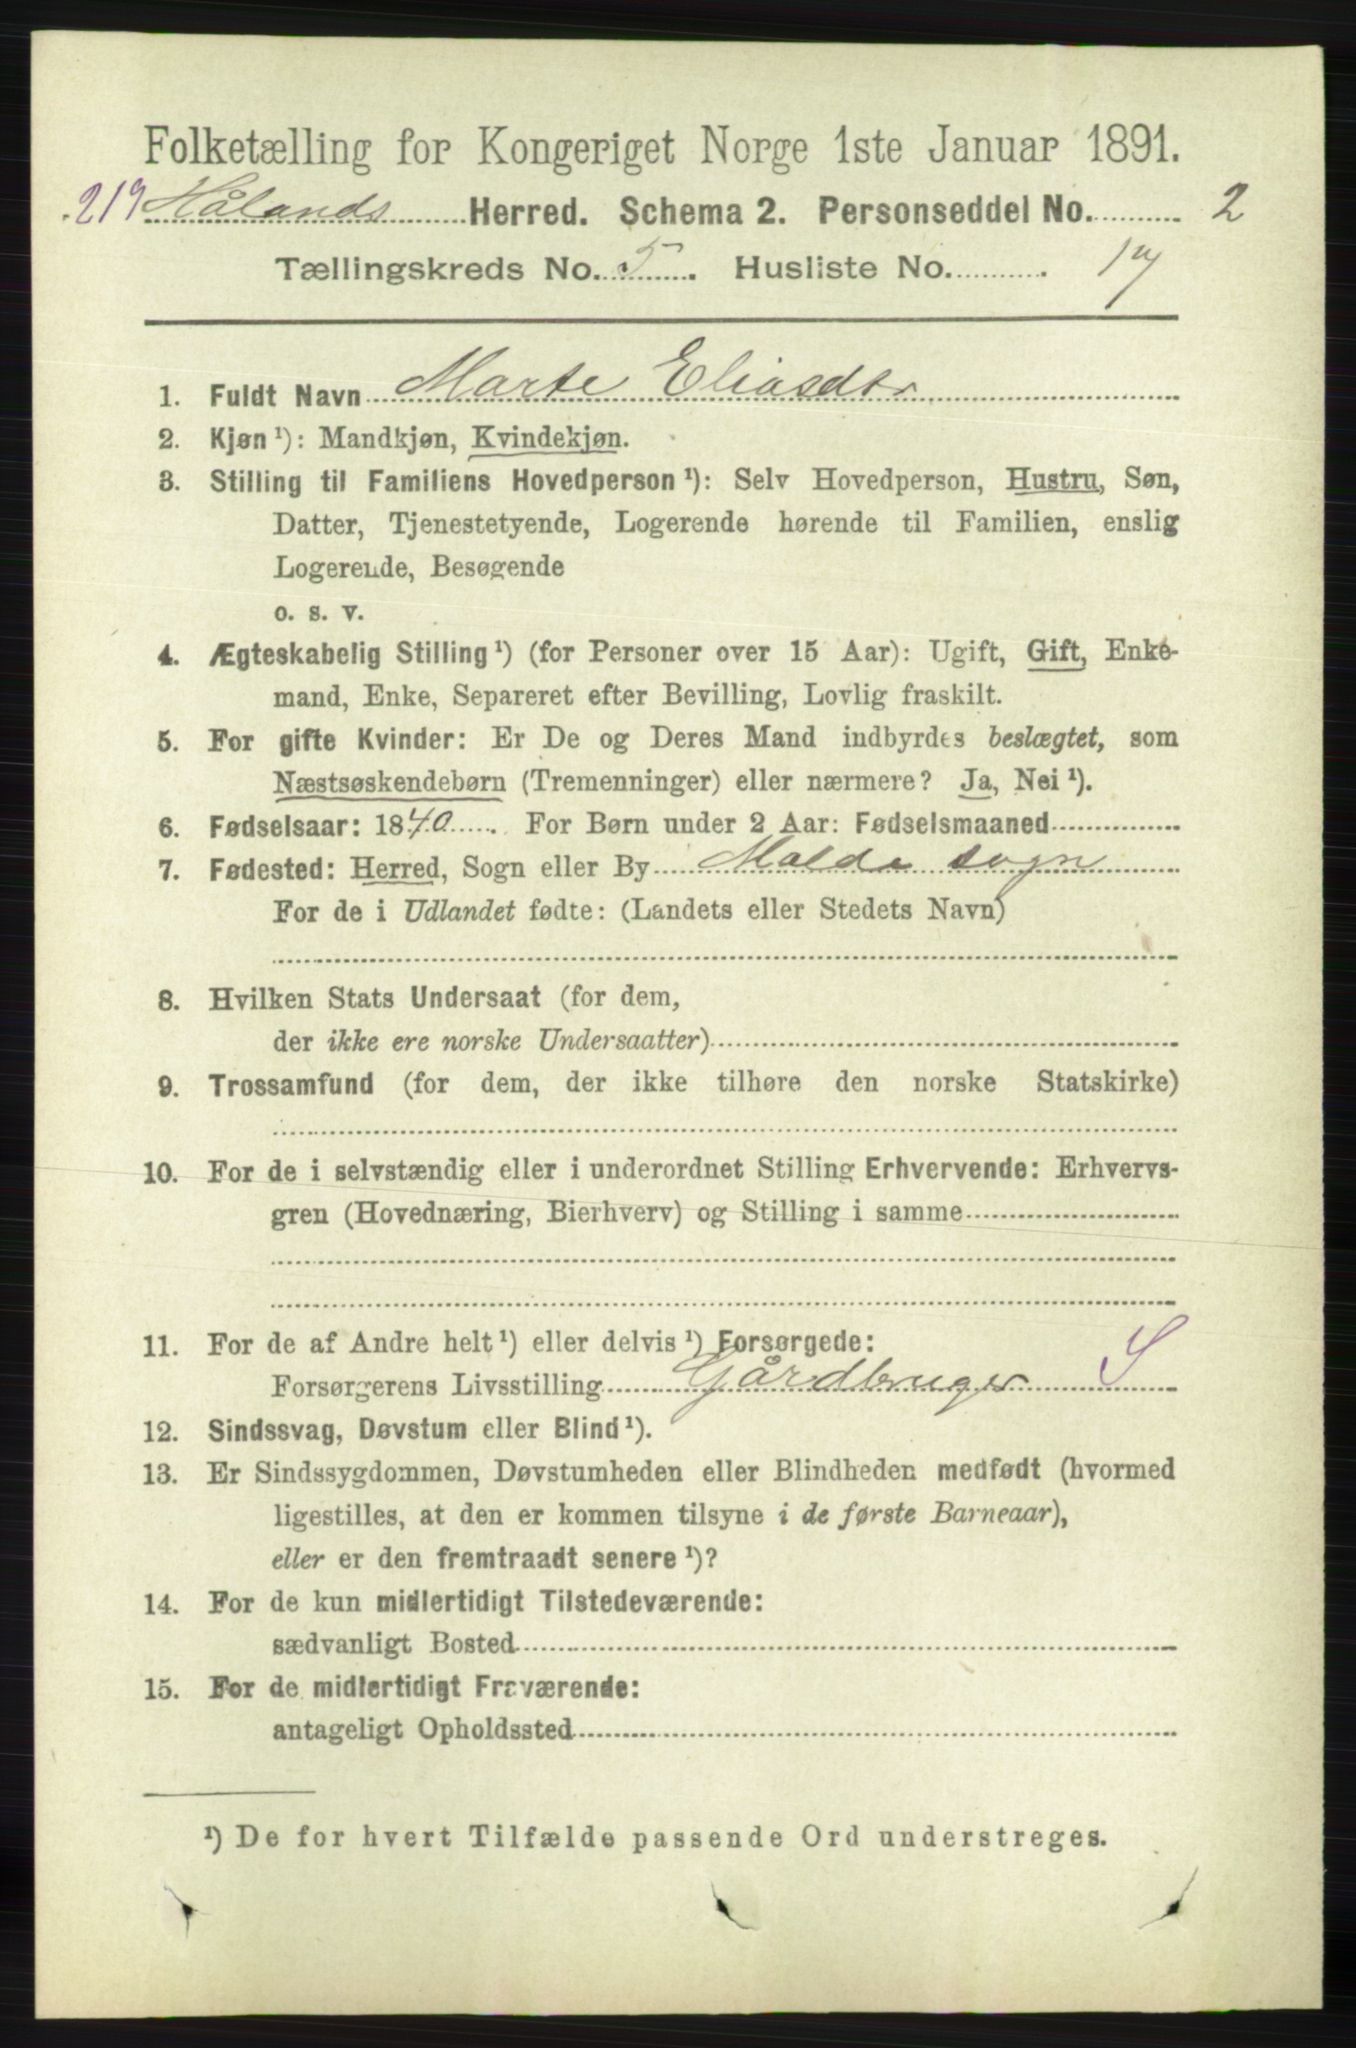 Folketælling for Kongeriget Norge 1ste Januar 1891.
219 Hålands Herred. Schema 2. Personseddel No. 2
Tællingskreds No. 5. Husliste No. 17
1. Fuldt Navn Marte Eliasdtr
2. Kjøn ¹): Mandkjøn, Kvindekjøn.
3. Stilling til Familiens Hovedperson ¹): Selv Hovedperson, Hustru, Søn,
Datter, Tjenestetyende, Logerende hørende til Familien, enslig
Logerende, Besøgende
o. s. v.
4. Ægteskabelig Stilling ¹) (for Personer over 15 Aar): Ugift, Gift, Enke-
mand, Enke, Separeret efter Bevilling, Lovlig fraskilt.
5. For gifte Kvinder: Er De og Deres Mand indbyrdes beslægtet, som
Næstsøskendebørn (Tremenninger) eller nærmere? Ja, Nei ¹).
6. Fødselsaar: 1840. For Børn under 2 Aar: Fødselsmaaned
7. Fødested: Herred, Sogn eller By Molde sogn
For de i Udlandet fødte: (Landets eller Stedets Navn)
8. Hvilken Stats Undersaat (for dem,
der ikke ere norske Undersaatter)
9. Trossamfund (for dem, der ikke tilhøre den norske Statskirke)
10. For de i selvstændig eller i underordnet Stilling Erhvervende: Erhvervs-
gren (Hovednæring, Bierhverv) og Stilling i samme
11. For de af Andre helt ¹) eller delvis ¹) Forsørgede:
Forsørgerens Livsstilling Gårdbruger S
12. Sindssvag, Døvstum eller Blind ¹).
13. Er Sindssygdommen, Døvstumheden eller Blindheden medfødt (hvormed
ligestilles, at den er kommen tilsyne i de første Barneaar),
eller er den fremtraadt senere ¹)?
14. For de kun midlertidigt Tilstedeværende:
sædvanligt Bosted
15. For de midlertidigt Fraværende:
antageligt Opholdssted
¹) De for hvert Tilfælde passende Ord understreges.